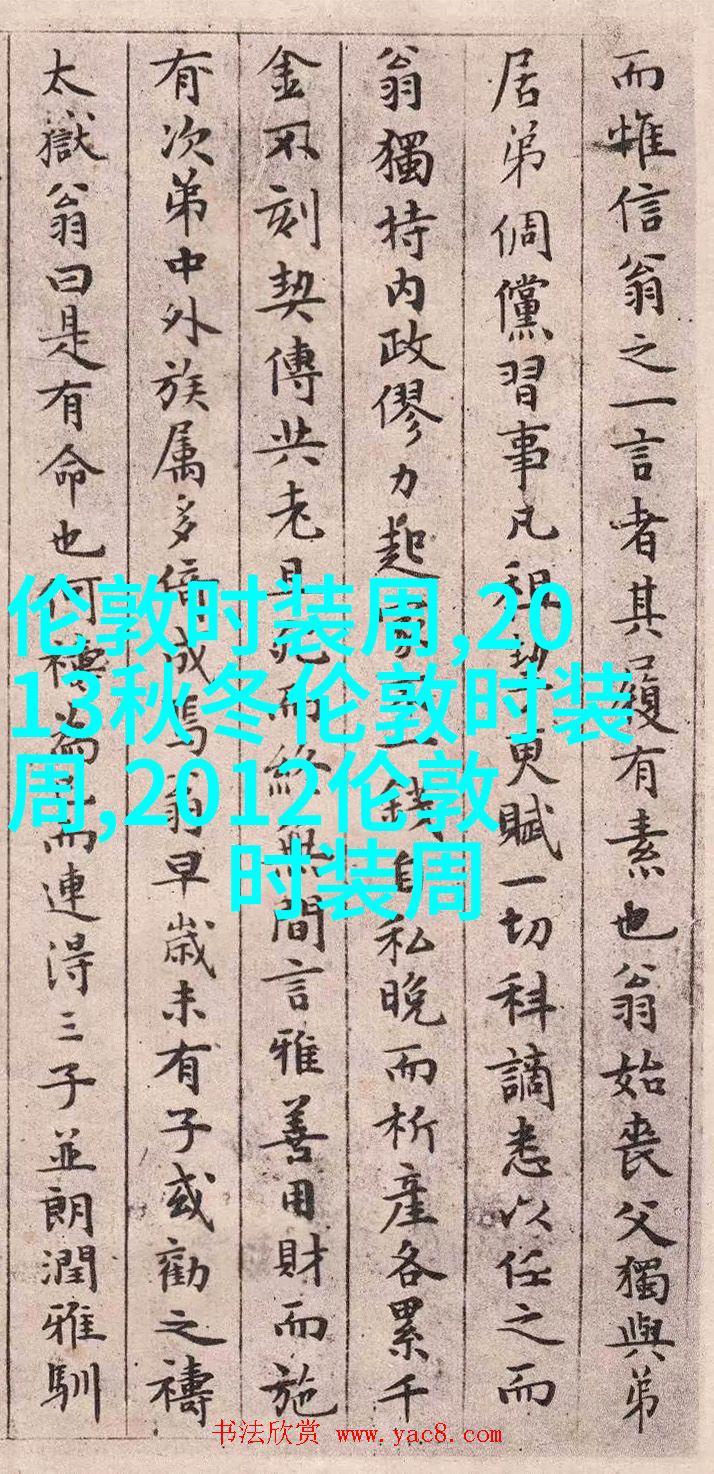 而惟信翁之一言者其履有素也翁始喪父獨與弟
居弟倜儻習事凡租更賦一切科謫悉以任之而
翁獨持内政僇力起一錢自私晚而析產各累千
金不刻契傳共老且死而終無間言雅善用財而施
有次弟中外族属多倍成焉翁早歲未有子或勸之禱
太嶽翁曰是有命也何禱為而連得三子並朗潤雅馴
伦敦时装周,20
13秋冬伦敦时装
周,2012伦敦
时装周
书法欣赏 www.yac8.com